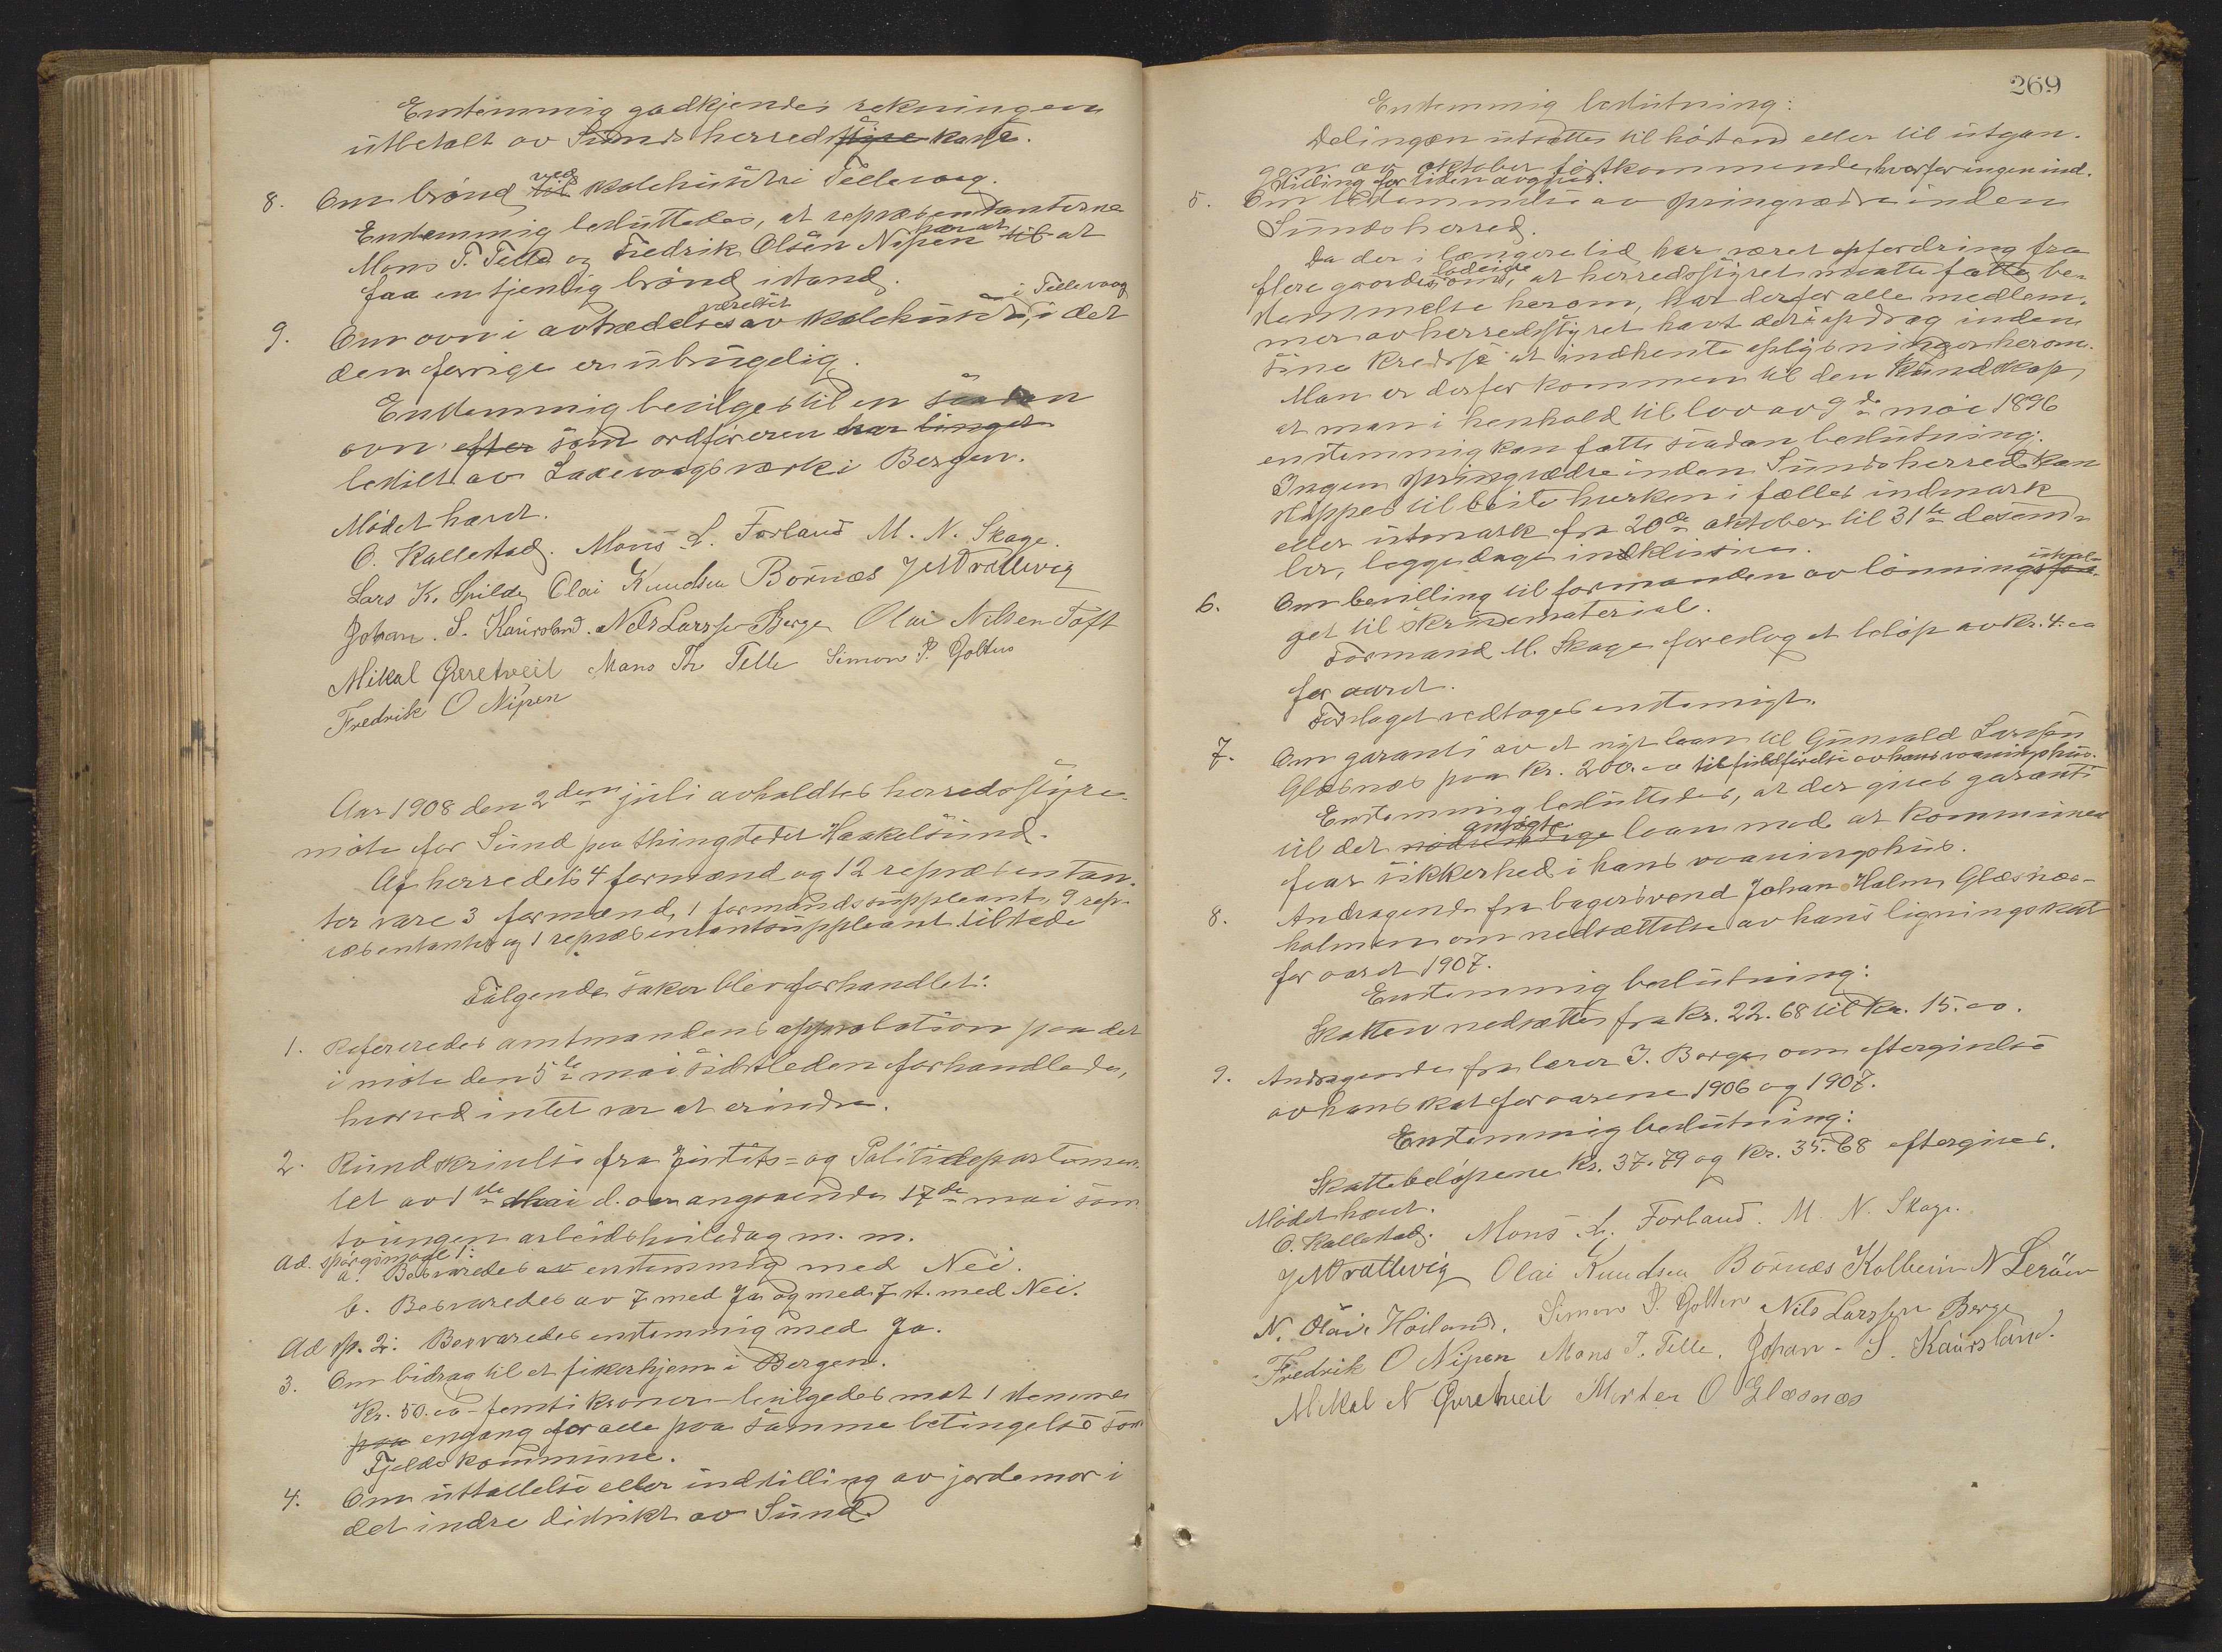 Enstemmig godkjendes rekningen
utbetalt av Sunds herredsstyre kasse.
8. Om brönd til ved skolehuset i Tellevaag.
Enstemmig besluttedes, at repræsentanterne
Mons T. Telle og Fredrik Olsen Nipen til at
faa en tjenlig brönd istand.
9. Om ovn i avtrædelses værelset av skolehuset i Tellevaag, i det
den forrige er ubrugelig.
Enstemmig bevilges til en saadan
ovn efter som ordföreren har
bestilt av Laxevaags værk i Bergen.
Mödet hævet.
O. Kallestad. Mons L. Forland M. N. Skage.
Lars K. Spilde Olai Knudsen Börnes
Johan. S. Kausland. Nils Larssen Berge Olai Nilsen Toft
Mikal Qvretveit Mons Th Telle Simon P. Golten
Fredrik O Nipen
Aar 1908 den 2den juli avholdtes herredsstyre-
möte for Sund paa thingstedet Haakelsund.
Af herredets 4 formænd og 12 repræsentan-
ter vare 3 formænd, 1 formandssuppleant, 9 rep-
ræsentanter og 1 repræsentantsuppleant tilstede
Fölgende saker blev forhandlet:
1. Refereredes amtmandens approbation paa det
i möte den 5te mai sidstleden forhandlede,
hvorved intet var at erindre.
2. Rundskrivelse fra Justits- og Politidepartemen-
tet av 1ste mai d. a. angaaende 17de mai som
tvungen arbeidshviledag m. m.
Ad. spörgsmaal 1:
a. Besvaredes av enstemmig med Nei.
b. Besvaredes av 7 med Ja og med 7 st. med Nei.
Ad sp. 2: Besvaredes enstemmig med Ja.
3. Om bidrag til et fiskerhjem i Bergen.
Kr. 50.00 - femti kroner - bevilgedes mot 1 stemme
paa engang for alle paa samme betingelse som
Fjelds kommune.
4. Om uttallelse eller indstilling av jordemor i
det indre distrikt av Sund.
269
Enstemmig beslutning:
Delingen utsættes til höstand eller til utgan-
gen av oktober förstkommende, hvorfor ingen ind-
stilling for tiden avgives.
5. Om bestemmelse av springvædre inden
Sunds herred.
Da der i længere tid har været opfordring fra
flere gaardes, at herredsstyret maatte fatte be-
stemmelse herom, har derfor alle medlem-
mer av herredsstyret havt det i opdrag inden
sine kredse at indhente oplysninger herom.
Man er derfor kommen til den kundskap,
at man i henhold til lov av 9de mai 1896
enstemmig kan fatte saadan beslutning:
Ingen springvædre inden Sunds herred kan
slippes til beite hverken i fælles indmark
eller utmark fra 20de oktober til 31te desem-
ber, begge dage inklusive.
6. Om bevilling til formanden av lönningsutval-
get til skrivematerial.
Formand M. Skage foreslog et belöp av kr. 4.00
for aaret.
Forslaget vedtages enstemigt.
7. Om garanti av et nyt laan til Gunvald Larssen
Glesnes paa Kr. 200.00 til fuldförelse av hans vaaningshus.
Enstemmig besluttedes, at der gives garanti
til det nödvendige laan mod at kommunen
faar sikkerhed i hans vaaningshus.
8. Andragende fra bagersvend Johan Holm Glæsnes-
holmen om nedsættelse av hans ligningsskat
for aaret 1907.
Enstemmig beslutning:
Skatten nedsættes fra Kr. 22.68 til Kr. 15.00.
9. Andragende fra lærer J. Berge om eftergivelse
av hans skat for aarene 1906 og 1907.
Enstemmig beslutning:
Skattebelöpene Kr. 37.79 og Kr. 35.68 eftergives.
Mödet hævet.
O. Kallestad. Mons L. Forland. M. N. Skage.
Olai Knudsen Börnes Kolbein N Leröen
N. Olai. Höiland. Simon P. Golten Nils Larssen Berge
Fredrik O Nipen Mons T. Telle. Johan - S. Kausland.
Mikal N Qvretveit Morten O Glæsnæs